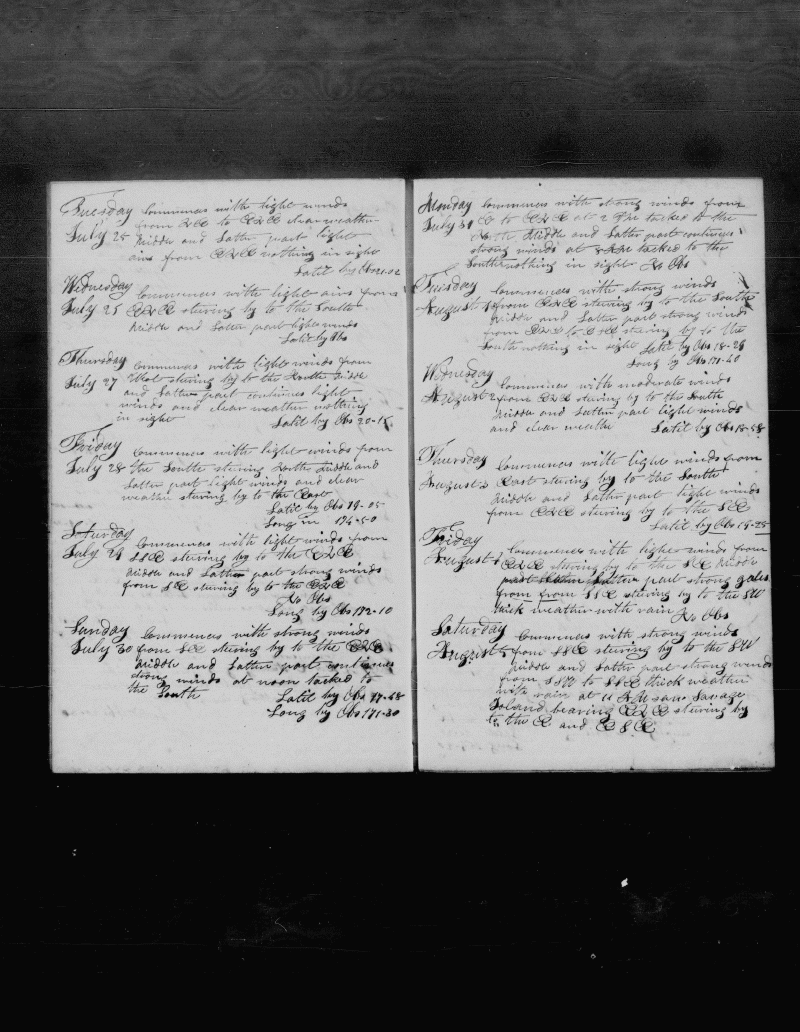 Tuesday Commences with light winds
from ENE to ENE clear weather
July 25 Middle and Latter part light
airs from ENE nothing in sight
Latit by Obs 21-02
Wednesday
Commences with light airs from
July 25 ENE stering by to the South
Middle and Latter part light winds
Latit by Obs
Thursday Commences with light winds from
stering by to the South Middle
July 27 and Latter part continues light
winds and clear weather nothing
in sight Latit by Obs 20-15
Friday Commences with light winds from
July 28 the South stering North Middle and
Latter part light winds and clear
weather stering by to the East
Latit by Obs 19-05
Long in 174-50
Saturday Commences with light winds from
July 29 SSE stering by to the ENE
Middle and Latter part strong winds
from SE stering by to the ENE
No Obs
Long by Obs 172-10
Sunday Commences with strong winds
July 30 from SE stering by to the ENE
Middle and Latter part continues
strong winds at noon tacked to
the South Latit by Obs 17-48
Long by Obs 171-30
Monday Commences with strong winds from
July 31 E to ENE at 2 PM tacked to the
North Middle and Latter part continues
strong winds at tacked to the
South nothing in sight No Obs
Tuesday Commences with strong winds
August 1 from ENE stering by to the South
Middle and Latter part strong winds
from ENE to ENE stering by to the
South nothing in sight Latit by Obs 18-28
Long by Obs 171-40
Wednesday Commences with moderate winds
August 2 from ENE stering by to the South
Middle and Latter part light winds
and clear weather Latit by Obs 18-58
Thursday Commences with light winds from
August 3 East stering by to the South
Middle and Latter part light winds
from ENE stering by to the SE
Latit by Obs 19-25
Friday Commences with light winds from
August 4 ENE stering by to the SE Middle
part Latter Latter part strong gales
from from SSE stering by to the SW
thick weather with rain No Obs
Saturday Commences with strong winds
August 5 from SSE stering by to the SW
Middle and Latter part strong winds
from SSW to SSE thick weather
with rain at 11 AM saw Savage
Island bearing ENE stering by
to the E and ESE